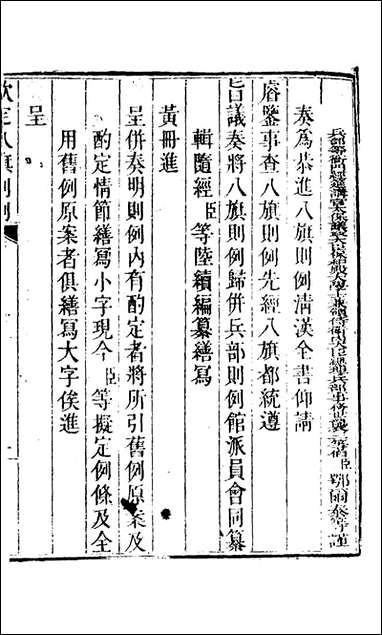 臣鄂爾泰等謹
奏為恭進八旗則例清漢全書仰請
睿鑒事查八旗則例先經八旗都統遵
旨議奏將八旗則例歸併兵部則例館派員會同纂
輯隨經臣等陸續編纂繕寫
黃冊進
呈併奏明則例內有酌定者將所引舊例原案及
酌定情節繕寫小字現今臣等擬定例條及全
用舊例原案者俱繕寫大字俟進
呈
欽定八旗則例